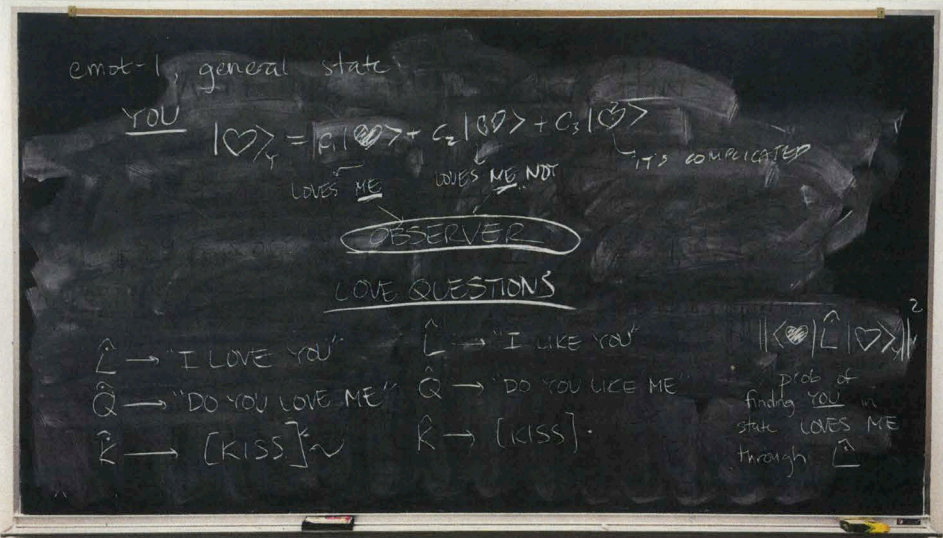 emot-1, general state
YOU
|♡>ᵧ = c₁|♥> + c₂|♡> + c₃|♡>
LOVES ME
LOVES ME NOT
IT'S COMPLICATED
OBSERVER
LOVE QUESTIONS
L̂ → "I LOVE YOU"
Q̂ → "DO YOU LOVE ME"
K̂ → [KISS]~
L̂ → "I LIKE YOU"
Q̂ → "DO YOU LIKE ME"
K̂ → [KISS].
||<♥|L̂|♡>||²
prob of
finding YOU in
state LOVES ME
through L̂